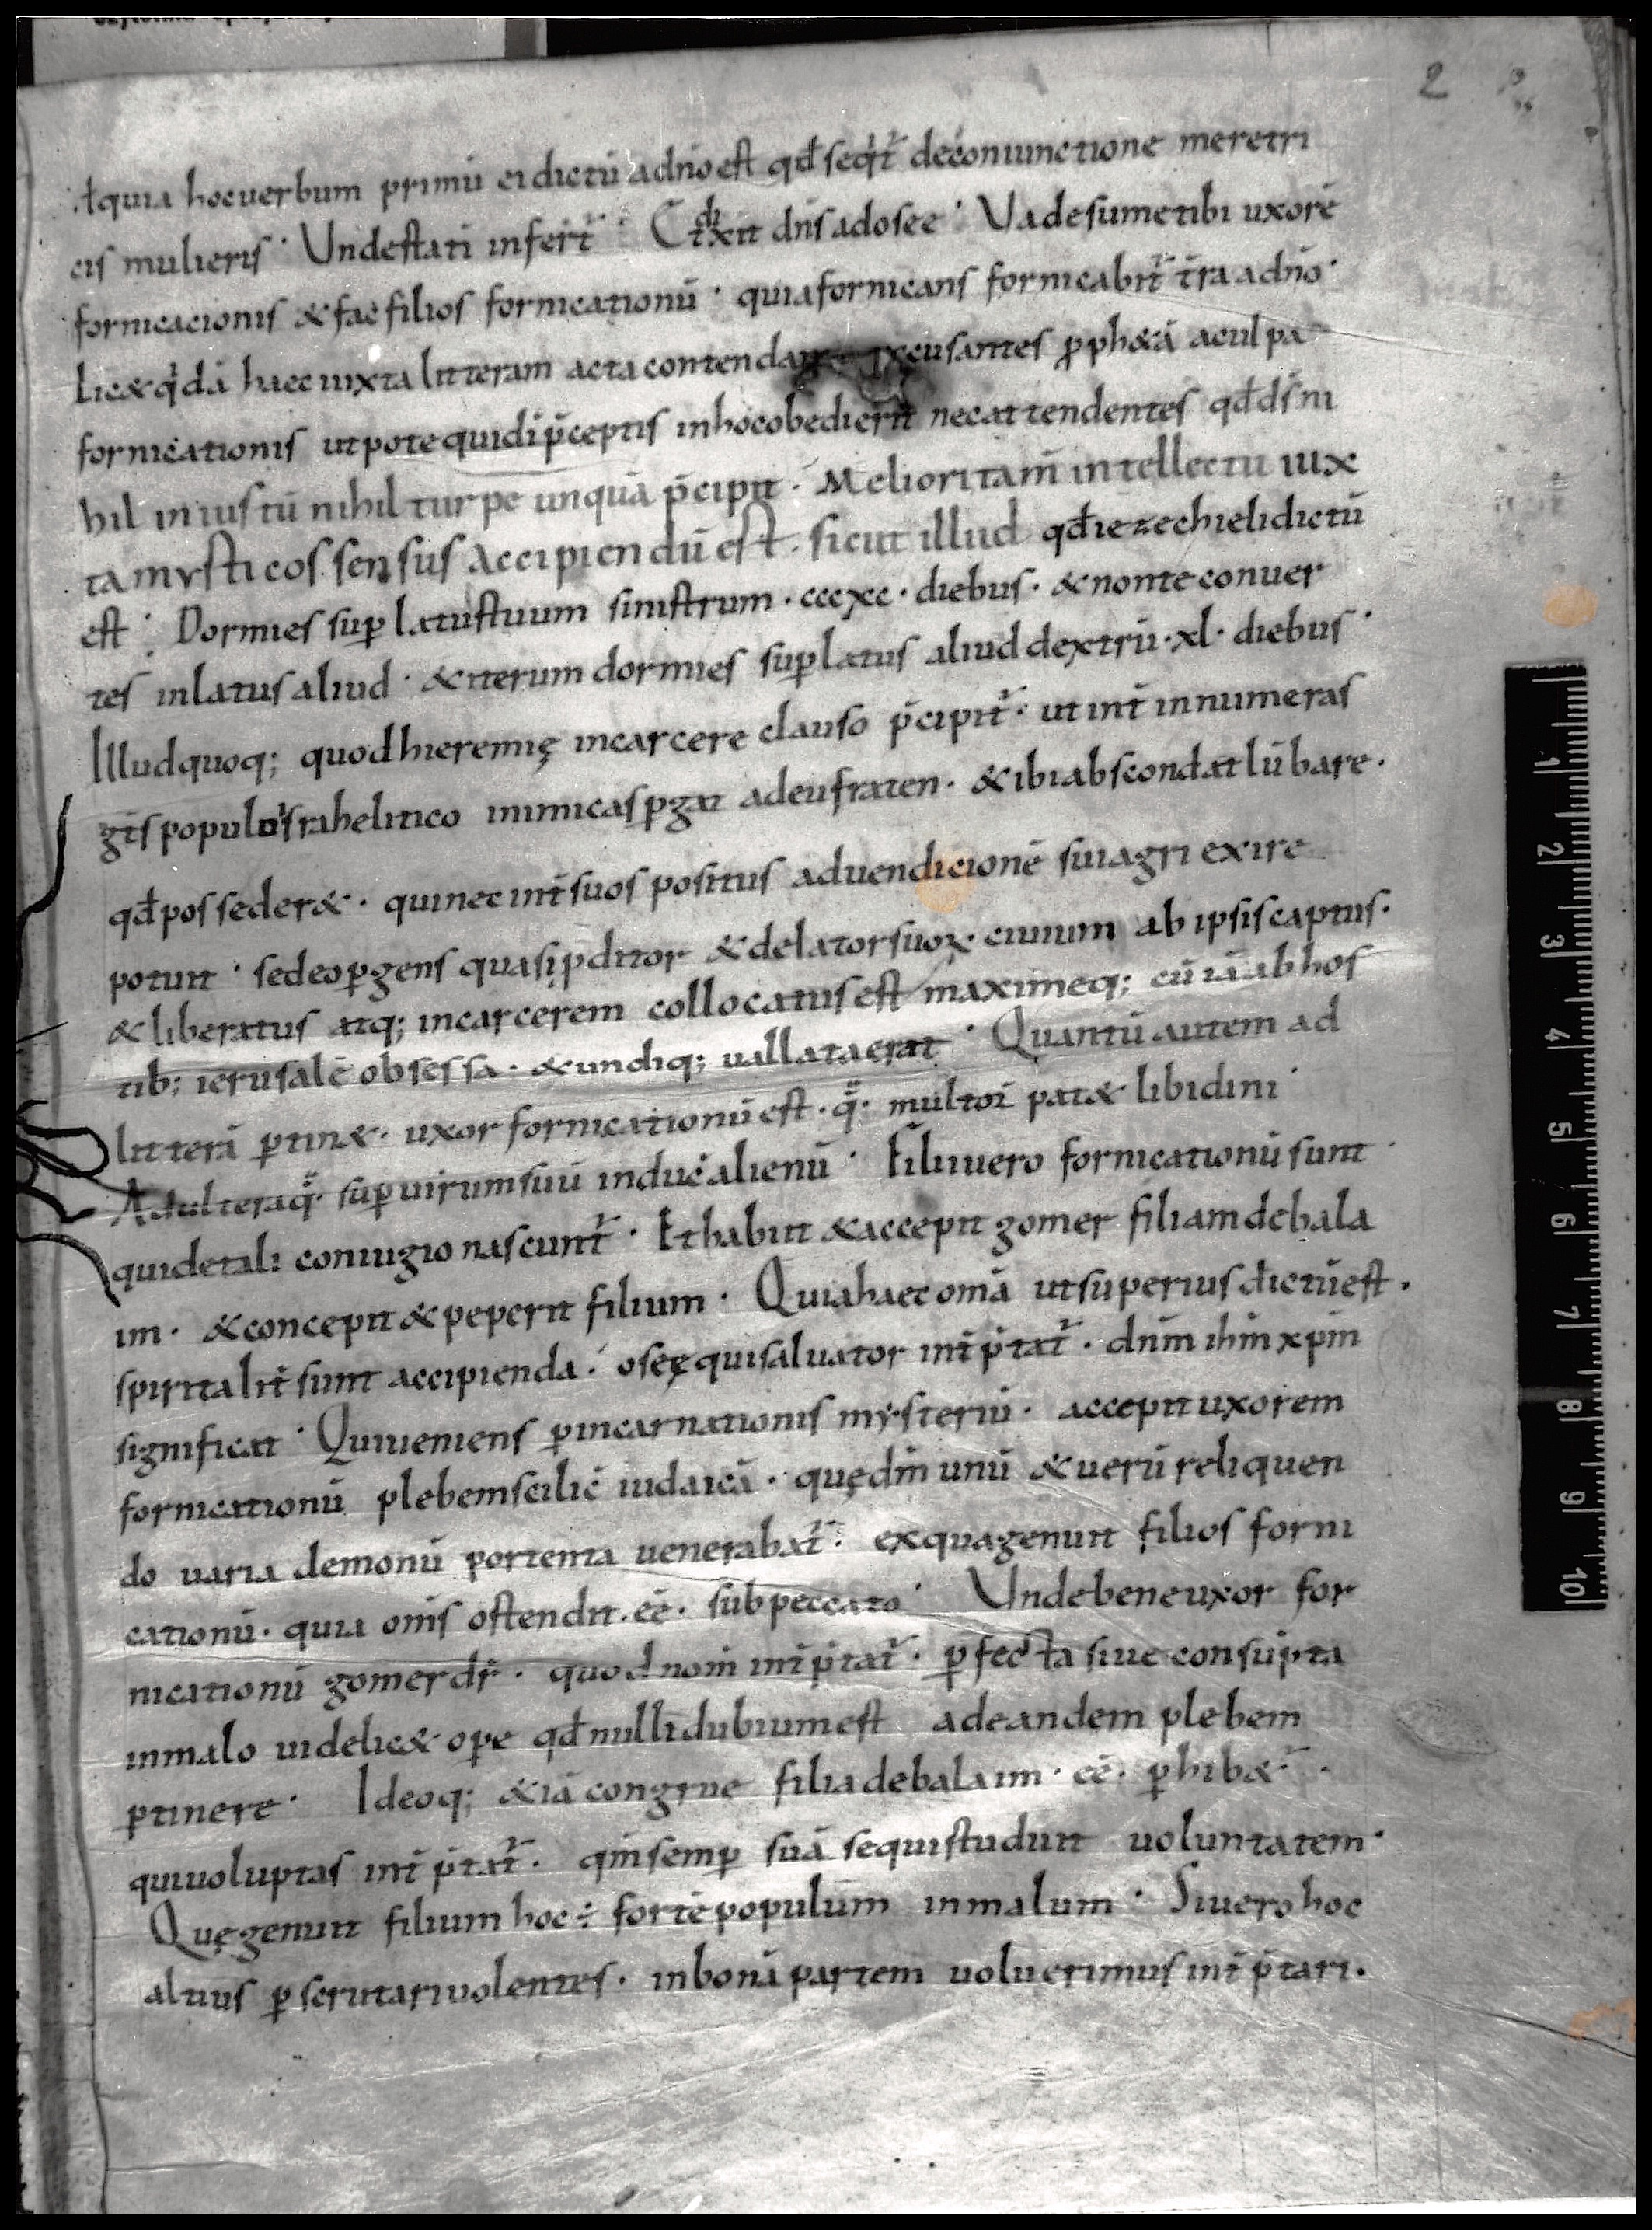 2
ł quia hoc uerbum primū ei dictū a dño est qđ seqit̃ de coniunctione meretri
cis mulieris · Unde stati infert̃ · Et dixit dñs ad osee · Vade sume tibi uxorē
fornicacionis & fac filios fornicationū · quia fornicans fornicabit̃ t̄ra a dño ·
Lic& q'dā haec iuxta litteram acta contendant excusantes ꝓph&ā a culpa
fornicationis utpote qui di p̄ceptis in hoc obedierit nec attendentes qđ ds̄ ni
hil iniustū nihil turpe unquā p̄cipit · Meliori tam̄ intellectu iux
ta mysticos sensus accipiendū est · sicut illud qđ iezechieli dictū
est · Dormies suꝑ latus tuum sinistrum · cccxc · diebus · & non te conuer
tes in latus aliud · & iterum dormies suꝑ latus aliud dextrū · xl · diebus ·
Illud quoq; quod hieremię in carcere clauso p̄cipit̃ · ut int̄ innumeras
gt̄is populo israhelitico inimicas ꝑgat ad eufraten · & ibi abscondat lūbare ·
qđ posseder& · qui nec int̄ suos positus ad uendicionē sui agri exire
potuit · sed eo ꝑgens quasi ꝓditor & delator suoꝝ ciuium ab ipsis captus ·
& liberatus atq; in carcerem collocatus est maximeq; cū iā ab hos
tib; ierusalē obsessa · & undiq; uallata erat · Quantū autem ad
litterā ꝑtin& · uxor fornicationū est · q̄ · multoꝝ pat& libidini ·
Adultera q̄ · suꝑ uirum suū induc̄ alienū · Filii uero fornicationū sunt ·
qui de tali coniugio nascunt̃ · Et habiit & accepit gomer filiam debala
im · & concepit & peperit filium · Quia haec om̄ā ut superius dictū est ·
spiritalit̄ sunt accipienda · oseę qui saluator int̄p̄tat̃ · dñm ihm xp̄m
significat · Qui ueniens ꝑ incarnationis mysteriū · accepit uxorem
fornicationū plebem scilic̄ iudaicā · quę dm̄ unū & uerū reliquen
do uaria demonū portenta uenerabat̃ · ex qua genuit filios forni
cationū · quia om̄s ostendit · eē · sub peccato · Unde bene uxor for
nicationū gomer dr̄ · quod nom̄ int̄p̄tat̃ · ꝑfecta siue consūpta
in malo uidelic& oꝑe qđ nulli dubium est ad eandem plebem
ꝑtinere · Ideoq; & iā congrue filia debalaim · eē · ꝑhib&̃ ·
qui uoluptas int̄p̄tat̃ · qm̄ semꝑ suā sequi studuit uoluntatem ·
Quę genuit filium hoc ÷ fortē populum in malum · Si uero hoc
altius ꝑscrutari uolentes · in bonā partem uoluerimus int̄p̄tari ·
1
2
3
4
5
6
7
8
9
10